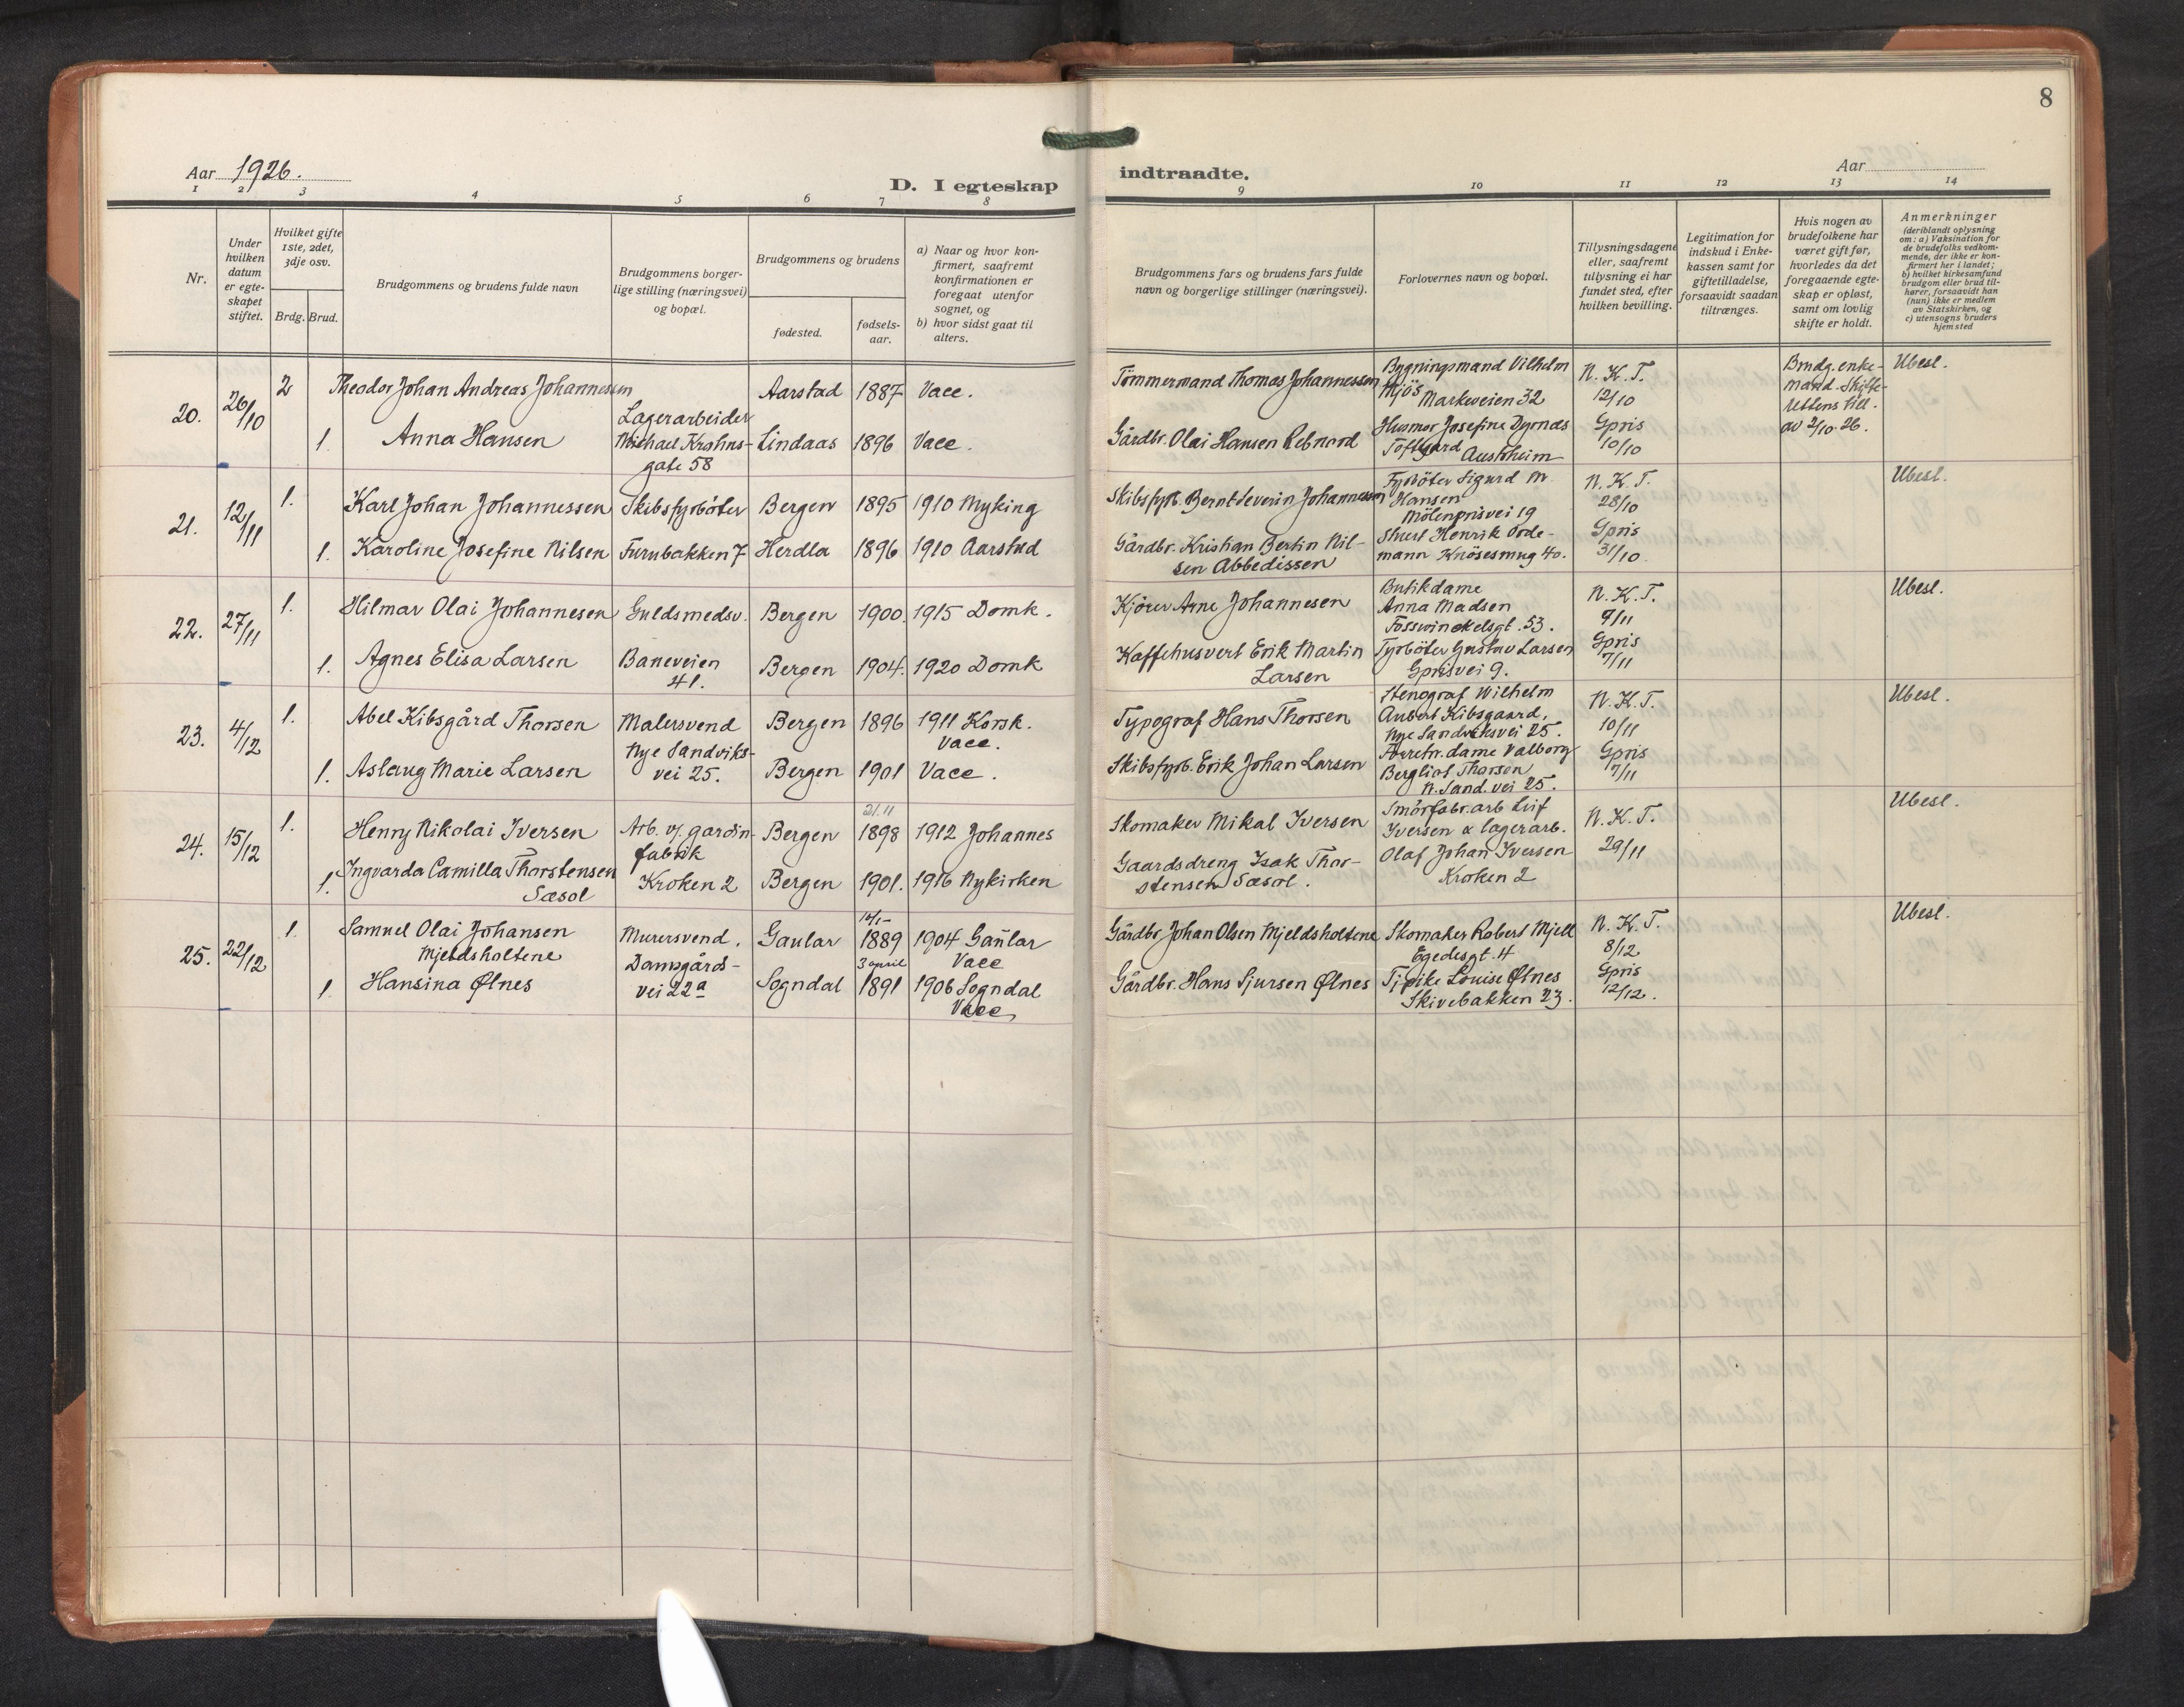 8
Aar 1926.
D. I egteskap indtraadte.
Aar
1 2 3 4 5 6 7 8 9 10 11 12 13 14
Nr.
Under hvilken datum er egteskapet stiftet.
Hvilket gifte 1ste, 2det, 3dje osv.
Brdg. Brud.
Brudgommens og brudens fulde navn
Brudgommens borgerlige stilling (næringsvei) og bopæl.
Brudgommens og brudens
fødested.
fødselsaar.
a) Naar og hvor konfirmert, saafremt konfirmationen er foregaat utenfor sognet, og
b) hvor sidst gaat til alters.
Brudgommens fars og brudens fars fulde navn og borgerlige stillinger (næringsvei).
Forlovernes navn og bopæl.
Tillysningsdagene eller, saafremt tillysning ei har fundet sted, efter hvilken bevilling.
Legitimation for indskud i Enkekassen samt for giftetilladelse, forsaavidt saadan tiltrænges.
Hvis nogen av brudefolkene har været gift før, hvorledes da det foregaaende egteskap er opløst, samt om lovlig skifte er holdt.
Anmerkninger
(deriblandt oplysning om: a) Vaksination for de brudefolks vedkommende, der ikke er konfirmert her i landet;
b) hvilket kirkesamfund brudgom eller brud tilhører, forsaavidt han (hun) ikke er medlem av Statskirken, og
c) utensogns bruders hjemsted
20. 26/10
2 Theodor Johan Andreas Johannessen
Lagerarbeider
Michael Krohns-
gate 58
Aarstad 1887 Vace.
1. Anna Hansen
Lindaas 1896 Vace.
Tømmermand Thomas Johannessen
Gårdbr. Olai Hansen Rebnord
Bygningsmand Vilhelm
Mjøs Markeveien 32
Husmor Josefine Dyrnæs
Toftgard Austrheim
N. K. T.
12/10
Gpris
10/10
Brudg. enke-
mand. Skifte-
rettens till.
av 2/10. 26.
Ubesl.
21. 12/11
1. Karl Johan Johannessen
Skibsfyrbøter
Bergen 1895 1910 Myking
1. Karoline Josefine Nilsen
Furubakken 7
Herdla 1896 1910 Aarstad
Skibsfyrb. Bernt Severin Johannessen
Gårdbr. Kristian Bertin Nil-
sen Abbedissen
Fyrbøter Sigurd M.
Hansen
Mølenprisvei 19
Stuert Henrik Orde-
mann Knøsesmug 40.
N. K. T.
28/10
Gpris
31/10.
Ubesl.
22. 27/11
1. Hilmar Olai Johannesen
Guldsmedsv.
Bergen 1900. 1915 Domk.
1. Agnes Elisa Larsen
Baneveien
41.
Bergen 1904. 1920 Domk
Kjører Arne Johannesen
Kaffehusvert Erik Martin
Larsen
Butikdame
Anna Madsen
Fosswinckelsgt. 53.
Fyrbøter Gustav Larsen
Gprisvei 9.
N. K. T.
9/11
Gpris
7/11
Ubesl.
23. 4/12
1. Abel Kibsgård Thorsen
Malersvend
Nye Sandviks-
vei 25.
Bergen 1896 1911 Korsk.
Vace.
1. Aslaug Marie Larsen
Bergen 1901 Vace.
Typograf Hans Thorsen
Skibsfyrb. Erik Johan Larsen
Stenograf Wilhelm
Aubert Kibsgaard,
Nye Sandviksvei 25.
Forretn. dame Valborg
Bergliot Thorsen
N. Sand. vei 25.
N. K. T.
10/11
Gpris
7/11
Ubesl.
24. 15/12
1. Henry Nikolai Iversen
Arb. v/ gardin-
fabrik
Kroken 2
21.11
Bergen 1898 1912 Johannes
1. Ingvarda Camilla Thorstensen
Sæsol
Bergen 1901. 1916 Nykirken
Skomaker Mikal Iversen
Gaardsdreng Isak Thor-
stensen Sæsol.
Smørfabr.arb Leif
Iversen & lagerarb.
Olaf Johan Iversen
Kroken 2
N. K. T.
29/11
Ubesl.
25. 22/12
1. Samuel Olai Johansen
Mjeldsholtene
Murersvend.
Damsgårds-
vei 22a
Gaular 1889 1904 Gaular
Vace
1. Hansina Ølnes
3 april
Sogndal 1891 1906 Sogndal
Vace
Gårdbr Johan Olsen Mjeldsholtene
Gårdbr. Hans Sjursen Ølnes
Skomaker Robert Mjell
Egedesgt. 4
Tjpike Louise Ølnes
Skivebakken 23.
N. K. T.
8/12
Gpris
12/12.
Ubesl.